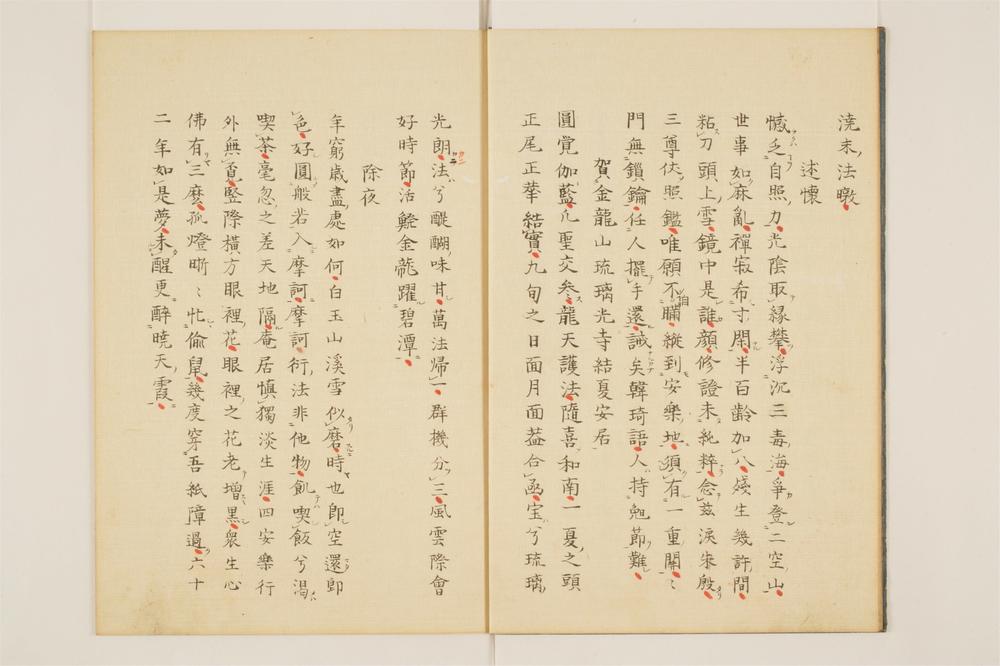 澆末法暾
述懷
憾乏自照力光陰取緣攀浮沉三毒海爭登二空山
世事如麻亂禪寂希寸閑半百齡加八殘生幾許間
粘刀頭上雪鏡中是誰顏修證未純粹念茲淚朱殷
三尊伏照鑑唯願不瞞縱到安樂地須有一重關〻
門無鎖鑰任人擺手還誡矣韓琦語人持晚節難
賀金龍山琉璃光寺結夏安居
圓覺伽藍凢聖交參龍天護法隨喜和南一夏之頭
正尾正華結實九旬之日面月面葢合函宝兮琉璃
光朗法兮醍醐味甘萬法歸一群機分三風雲際會
好時節活鱍金龍躍碧潭
除夜
年窮歲盡處如何白玉山溪雪似磨時也即空還即
色好圓般若入摩訶摩訶衍法非他物飢喫飯兮渴
喫茶毫忽之差天地隔庵居慎獨淡生涯四安樂行
外無覓竪際橫方眼裡花眼裡之花老增黑衆生心
佛有三麼孤燈晰〻忙偷鼠幾度穿吾紙障過六十
二年如是夢未醒更醉曉天霞